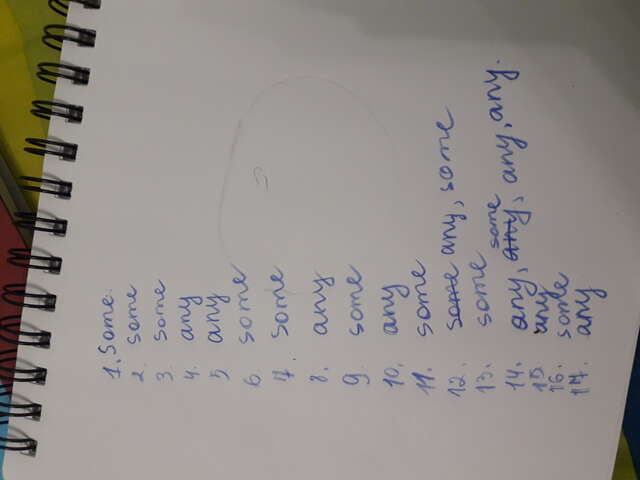 1. Some.
2. some
3. some
4. any
5 any
6. some
7. some
8. any
9. some
10. any
11. some
12. some any, some
13. some
14. any, any, some any, any.
15 any
16. some
17. any